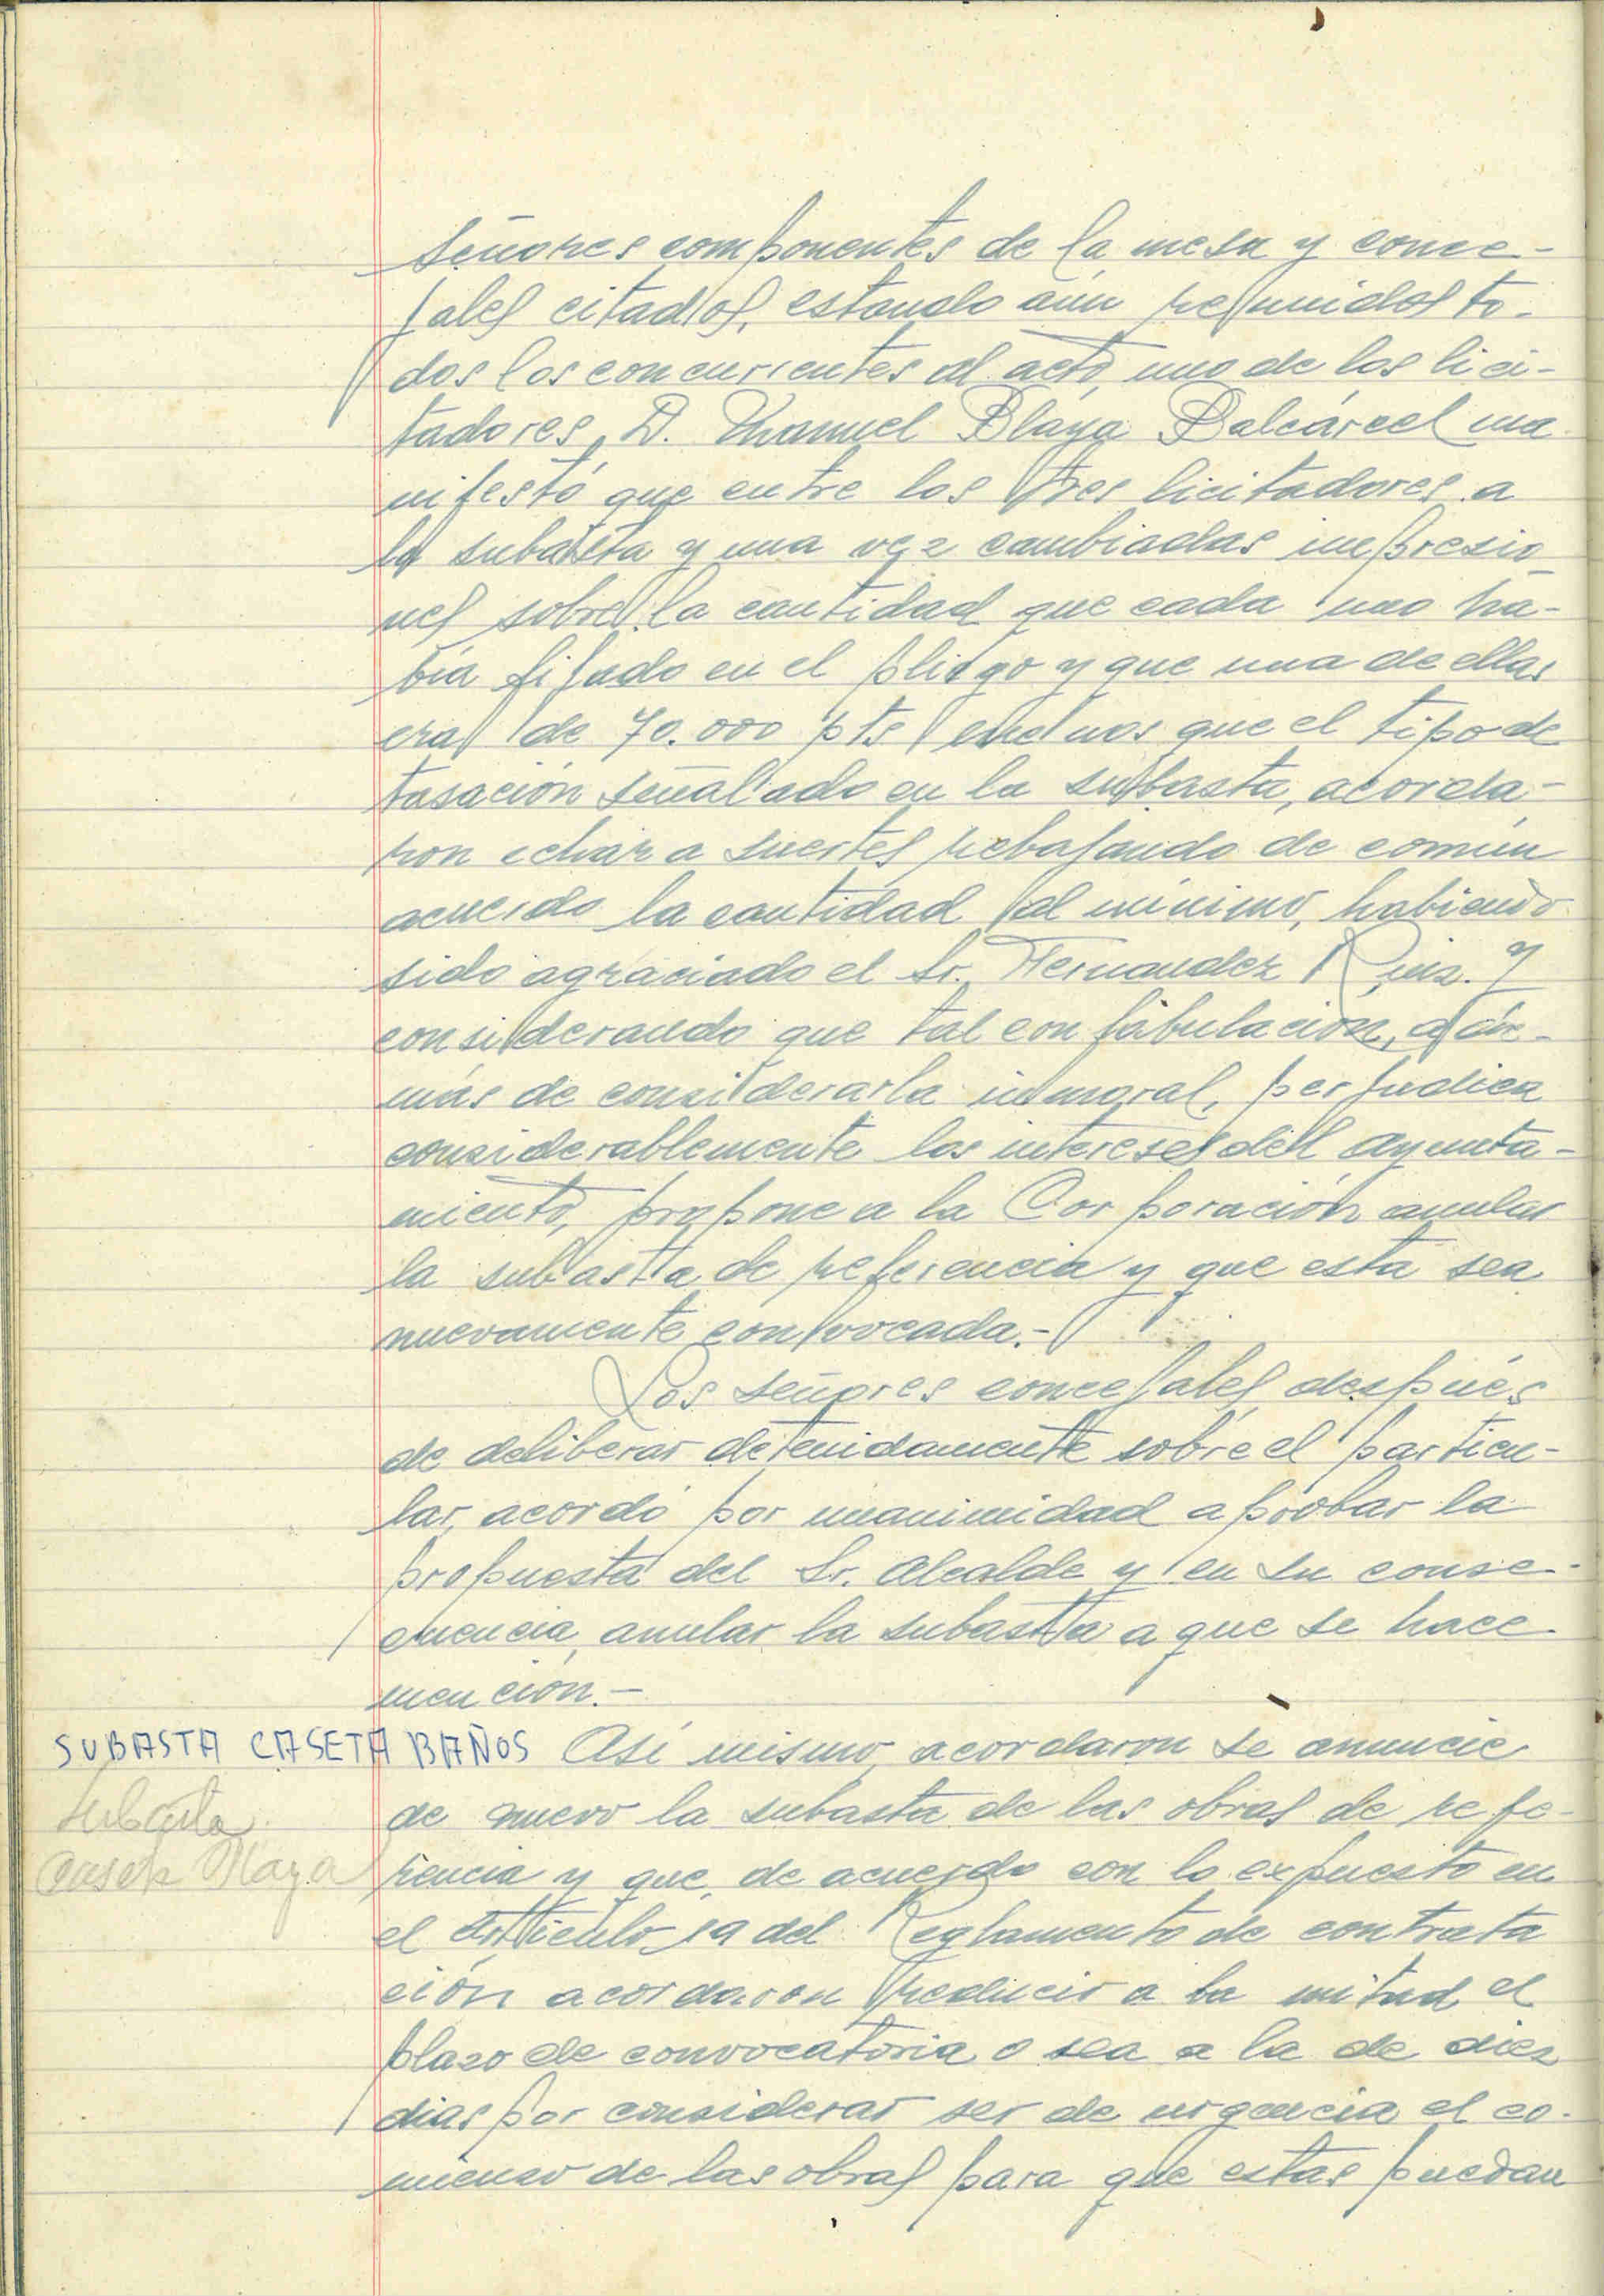 señores componentes de la mesa y conce-
jales citados, estando aún reunidos to-
dos los concurrentes al acto, uno de los lici-
tadores, D. Manuel Blaya Balcárcel ma-
nifestó que entre los tres licitadores a
la subasta y una vez cambiadas impresio-
nes sobre la cantidad que cada uno ha-
bía fijado en el pliego y que una de ellas
era de 70.000 pts menos que el tipo de
tasación señalado en la subasta, acorda-
ron echar a suertes rebajando de común
acuerdo la cantidad al mínimo, habiendo
sido agraciado el Sr. Fernandez Ruiz. Y
considerando que tal confabulación, ade-
más de considerarla inmoral, perjudica
considerablemente los intereses del Ayunta-
miento, propone a la Corporación anular
la subasta de referencia y que esta sea
nuevamente convocada.-
Los señores concejales, después
de deliberar detenidamente sobre el particu-
lar, acordó por unanimidad aprobar la
propuesta del Sr. Alcalde y en su conse-
cuencia, anular la subasta a que se hace
mención.-
SUBASTA CASETA BAÑOS Así mismo, acordaron se anuncie
Subasta
de nuevo la subasta de las obras de refe-
Caseta Playa
rencia y que, de acuerdo con lo expuesto en
el Artículo 19 del Reglamento de contrata
ción acordaron reducir a la mitad el
plazo de convocatoria o sea a la de diez
días por considerar ser de urgencia el co-
mienzo de las obras para que estas puedan